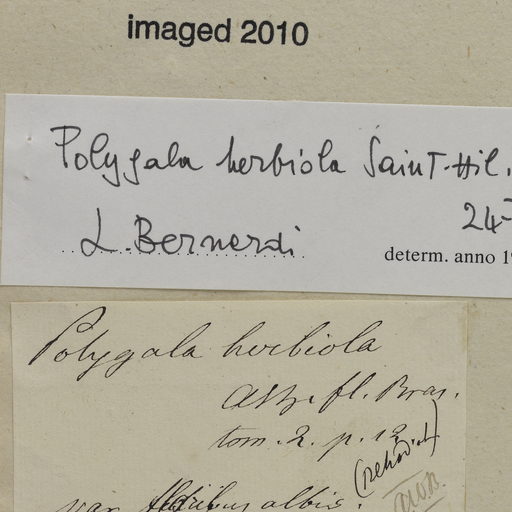 imaged 2010
Polygala herbiola Saint-Hil.
24-
L. Bernardi
determ. anno 19
Polygala herbiola
ASH. fl. Bras.
tom. 2. p. 12
var. floribus albis.